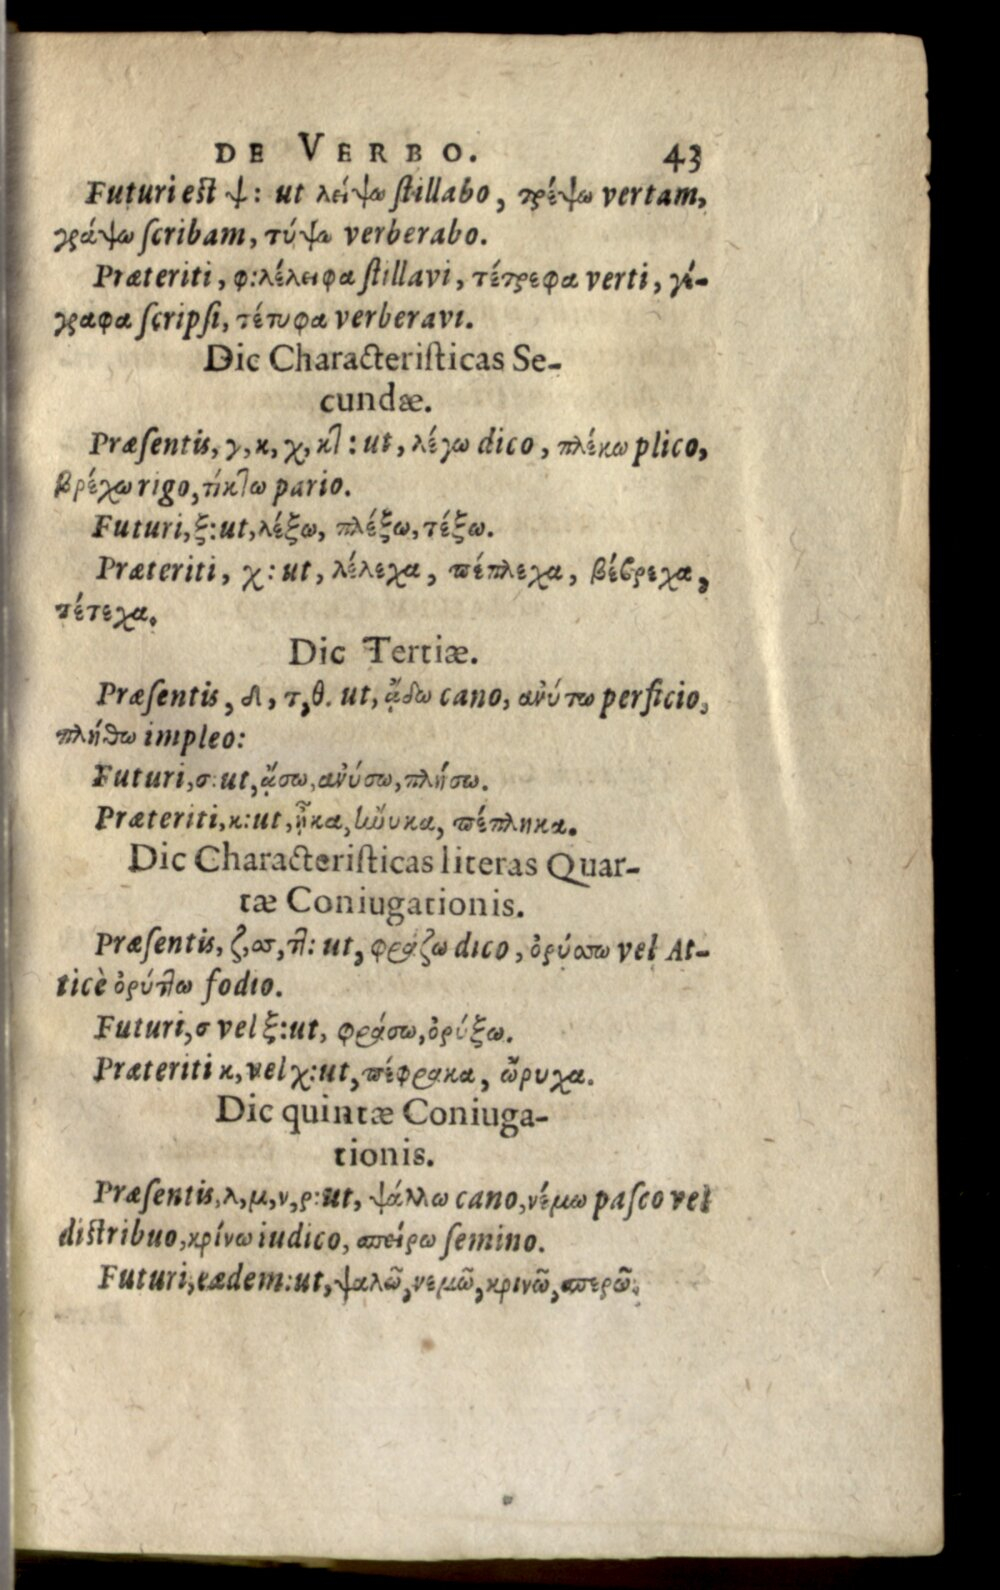 DE VERBO. 43
Futuri est ψ: ut λείψω ſtillabo, τρέψω vertam,
γράψω ſcribam, τύψω verberabo.
Præteriti, φ: λέλειφα ſtillavi, τέτρεφα verti, γέ-
γραφα ſcripſi, τέτυφα verberavi.
Dic Characteriſticas Se-
cundæ.
Præſentis, γ, κ, χ, κτ: ut, λέγω dico, πλέκω plico,
βρέχω rigo, τίκτω pario.
Futuri, ξ: ut, λέξω, πλέξω, τέξω.
Præteriti, χ: ut, λέλεχα, πέπλεχα, βέβρεχα,
τέτεχα.
Dic Tertiæ.
Præſentis, δ, τ, θ. ut, ᾄδω cano, ἀνύτω perficio,
πλήθω impleo:
Futuri, σ: ut, ᾄσω, ἀνύσω, πλήσω.
Præteriti, κ: ut, ᾖκα, ἤνυκα, πέπληκα.
Dic Characteriſticas literas Quar-
tæ Coniugationis.
Præſentis, ζ, σσ, ττ: ut, φράζω dico, ὀρύσσω vel At-
ticè ὀρύττω fodio.
Futuri, σ vel ξ: ut, φράσω, ὀρύξω.
Præteriti κ, vel χ: ut, πέφρακα, ὤρυχα.
Dic quintæ Coniuga-
tionis.
Præſentis, λ, μ, ν, ρ: ut, ψάλλω cano, νέμω paſco vel
diſtribuo, κρίνω iudico, σπείρω ſemino.
Futuri, eædem: ut, ψαλῶ, νεμῶ, κρινῶ, σπερῶ.